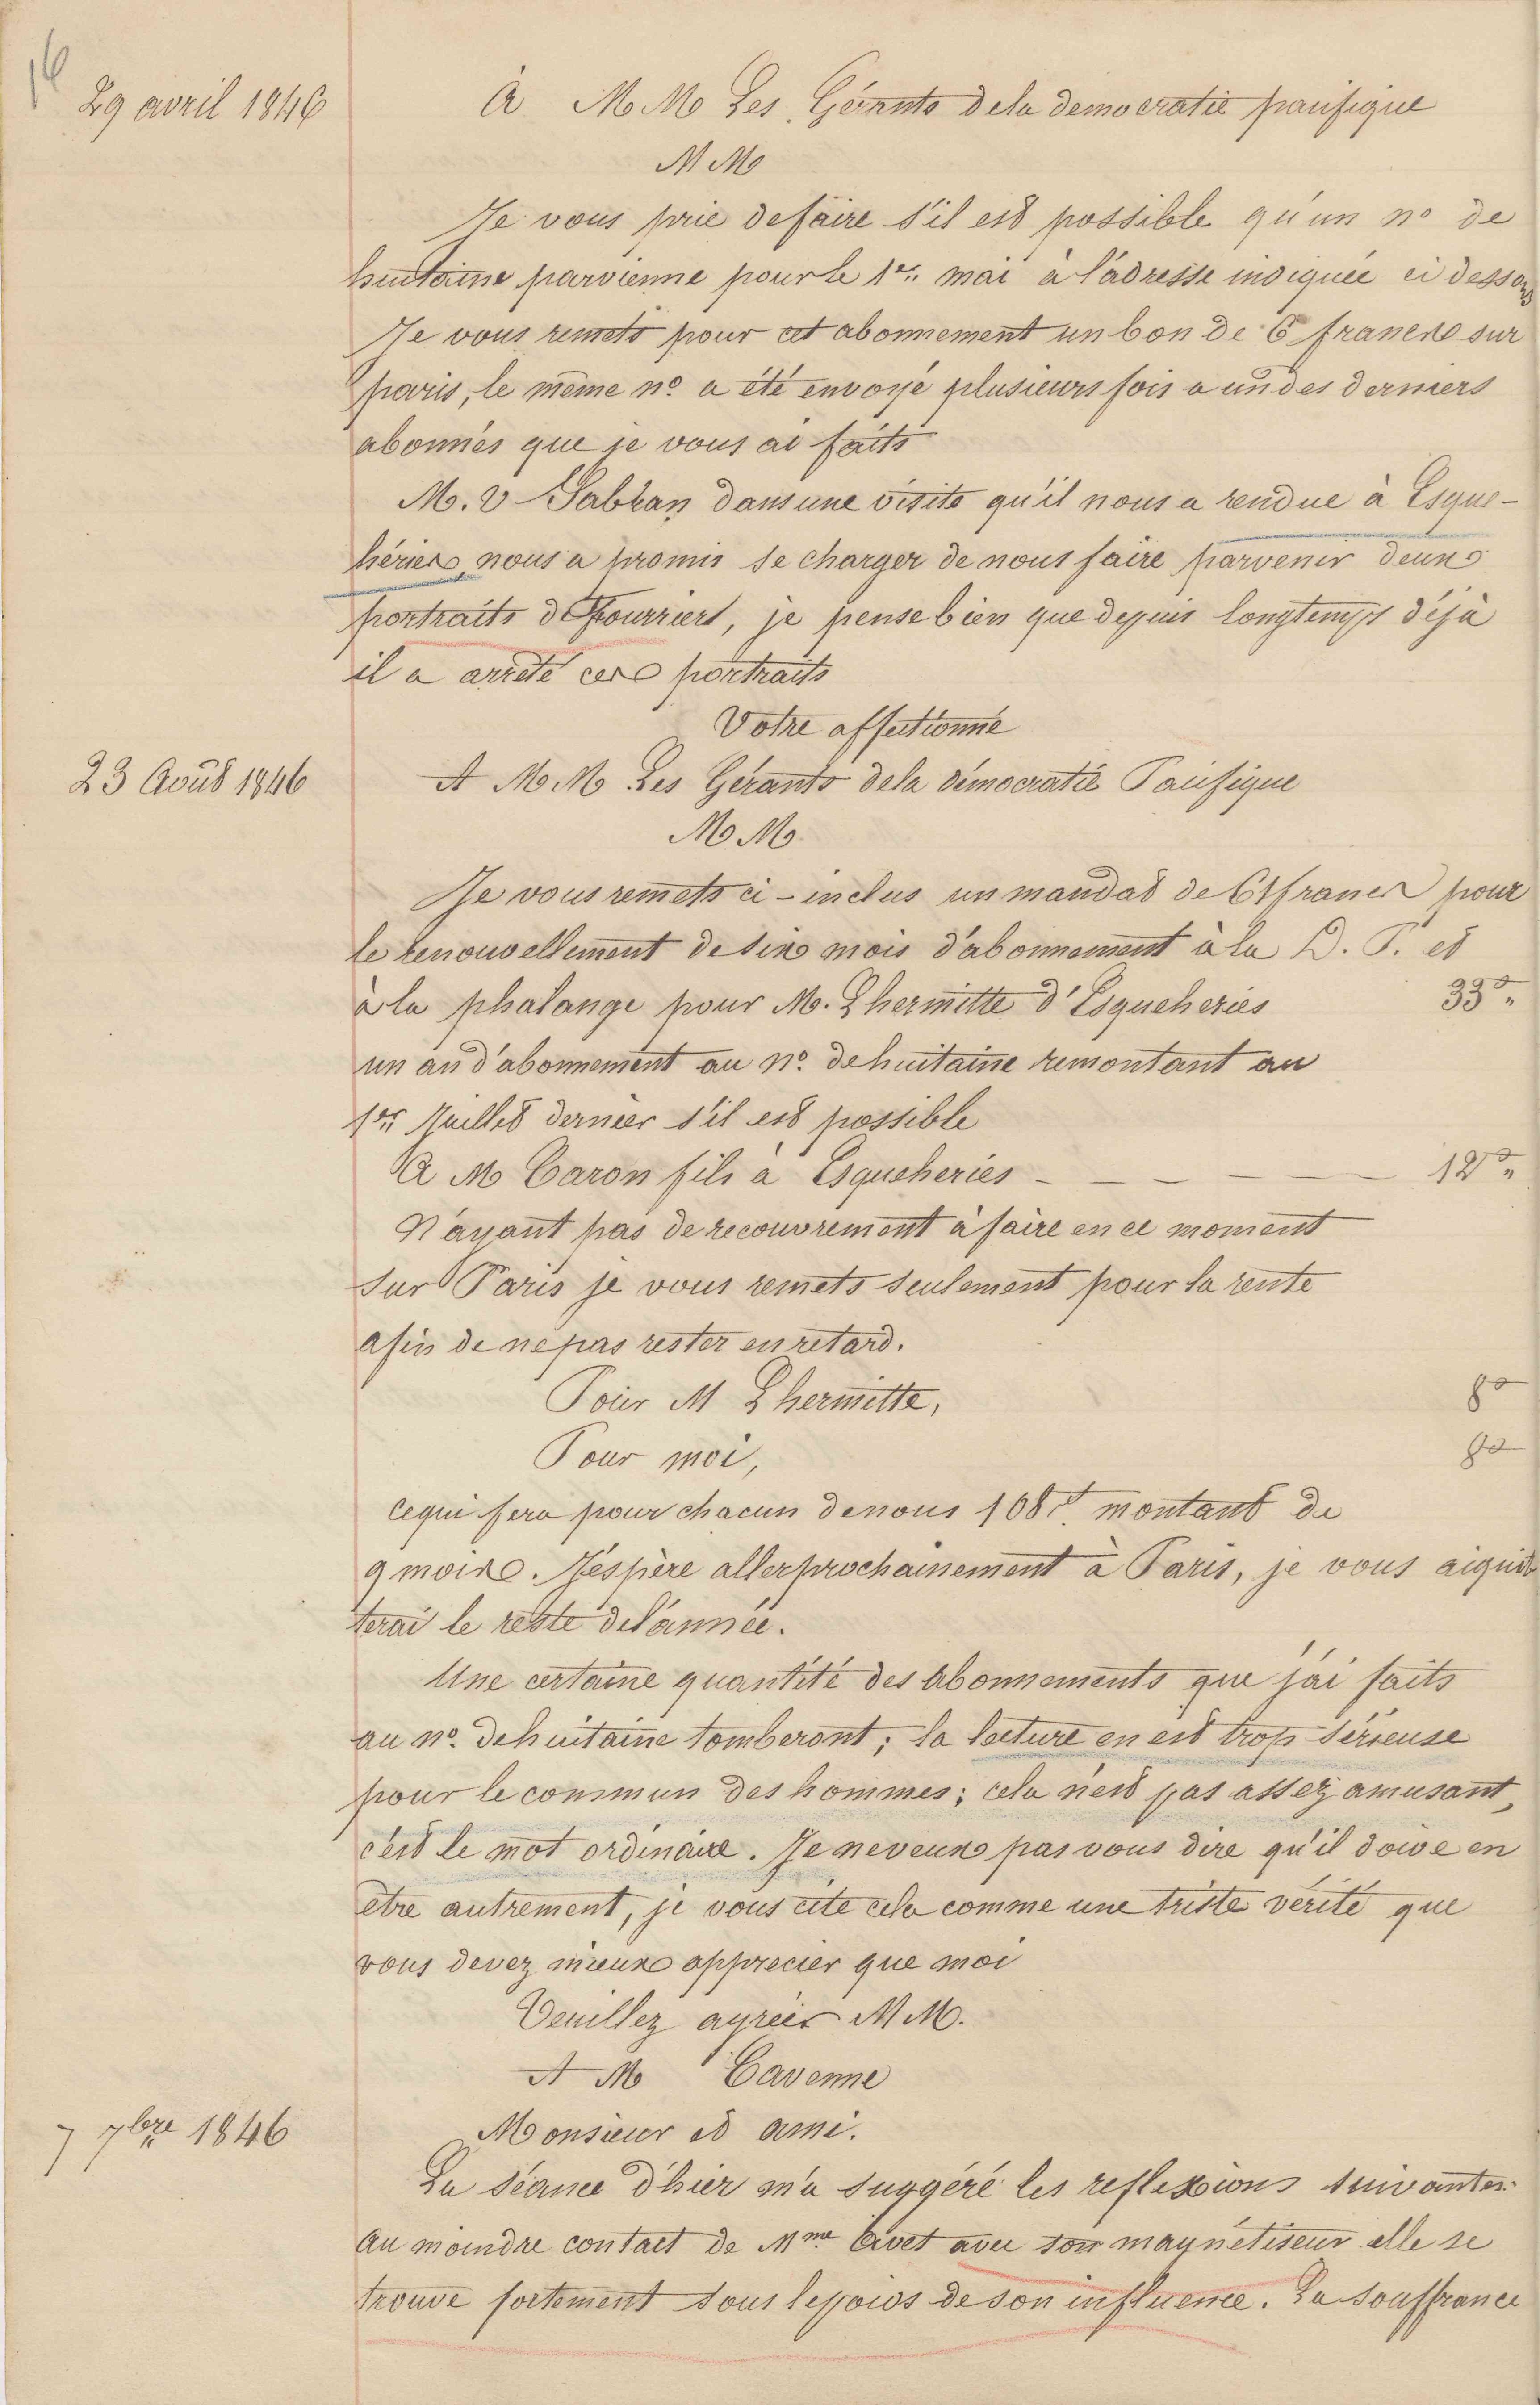 16
29 avril 1846
A M M Les Gérants de la democratie pacifique
M M
Je vous prie de faire s'il est possible qu'un no de
huitaine parvienne pour le 1er mai à l'adresse indiquée ci dessous
Je vous remets pour cet abonnement un bon de 6 francs sur
paris, le même no a été envoyé plusieurs fois a un des derniers
abonnés que je vous ai faits
M. v Sabran dans une visite qu'il nous a rendue à Esque-
héries nous a promis se charger de nous faire parvenir deux
portraits de Fourriert, je pense bien que depuis longtemps déjà
il a arrêté ces portraits
Votre affectionné
23 Août 1846
A M M Les Gérants de la démocratie Pacifique
M M
Je vous remets ci-inclus un mandat de 61 francs pour
le renouvellement de six mois d'abonnement à la D. P. et
à la phalange pour M. Lhermitte d'Esqueheries 33 "
un an d'abonnement au no. de huitaine remontant au
1er Juillet dernier s'il est possible
A M Caron fils à Esqueheries - - - - - - 12 "
N'ayant pas de recouvrement à faire en ce moment
sur Paris je vous remets seulement pour la rente
afin de ne pas rester en retard.
Pour M Lhermitte, 8
Pour moi, 8
ce qui fera pour chacun de nous 108 f. montant de
9 mois. J'éspère aller prochainement à Paris, je vous aquit
terai le reste de l'année.
Une certaine quantité des abonnements que j'ai faits
au no. de huitaine tomberont; la lecture en est trop sérieuse
pour le commun des hommes; cela n'est pas assez amusant,
c'est le mot ordinaire. Je ne veux pas vous dire qu'il doive en
être autrement, je vous cite cela comme une triste vérité que
vous devez mieux apprecier que moi
Veuillez agréer M M.
A M Cavenne
7 7bre 1846
Monsieur et ami.
La séance d'hier m'a suggéré les reflexions suivantes:
Au moindre contact de Mme avec son magnétiseur elle se
trouve fortement sous le poids de son influence. La souffrance